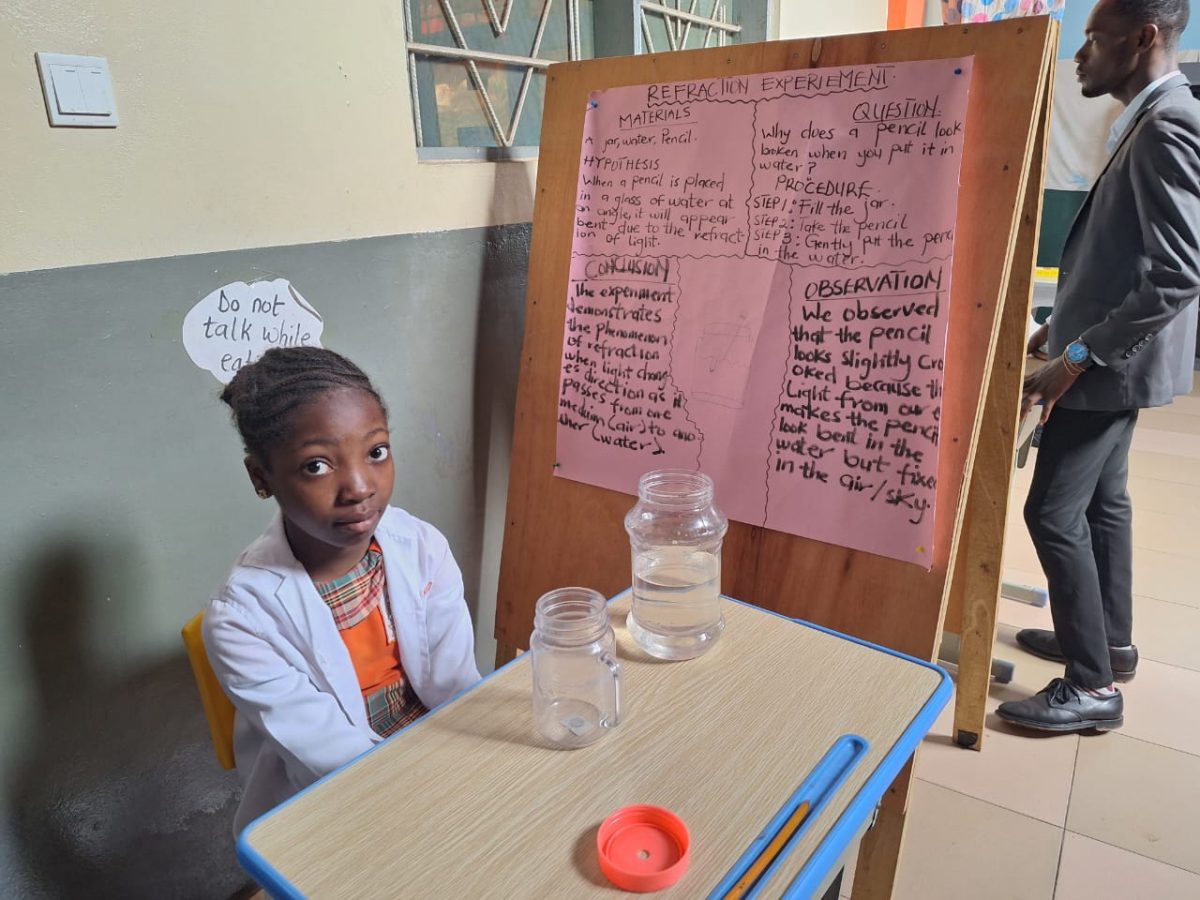 REFRACTION EXPERIEMENT.
MATERIALS
A jar, water, Pencil.
HYPOTHESIS
When a pencil is placed
in a glass of water at
an angle, it will appear
bent due to the refract-
ion of light.
QUESTION.
Why does a pencil look
boken when you put it in
water?
PROCEDURE.
STEP 1: Fill the jar.
STEP 2: Take the pencil
STEP 3: Gently put the penci
in the water.
CONCLUSION
The experiment
demonstrates
the phenomenon
of refraction
when light chang
es direction as it
passes from one
medium (air) to ano
ther (water).
OBSERVATION
We observed
that the pencil
looks slightly cro
oked because th
Light from our e
makes the pencil
look bent in the
water but fixe
in the air/sky.
Do not
talk while
ea